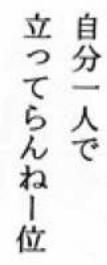 自分一人で
立ってらんねー位